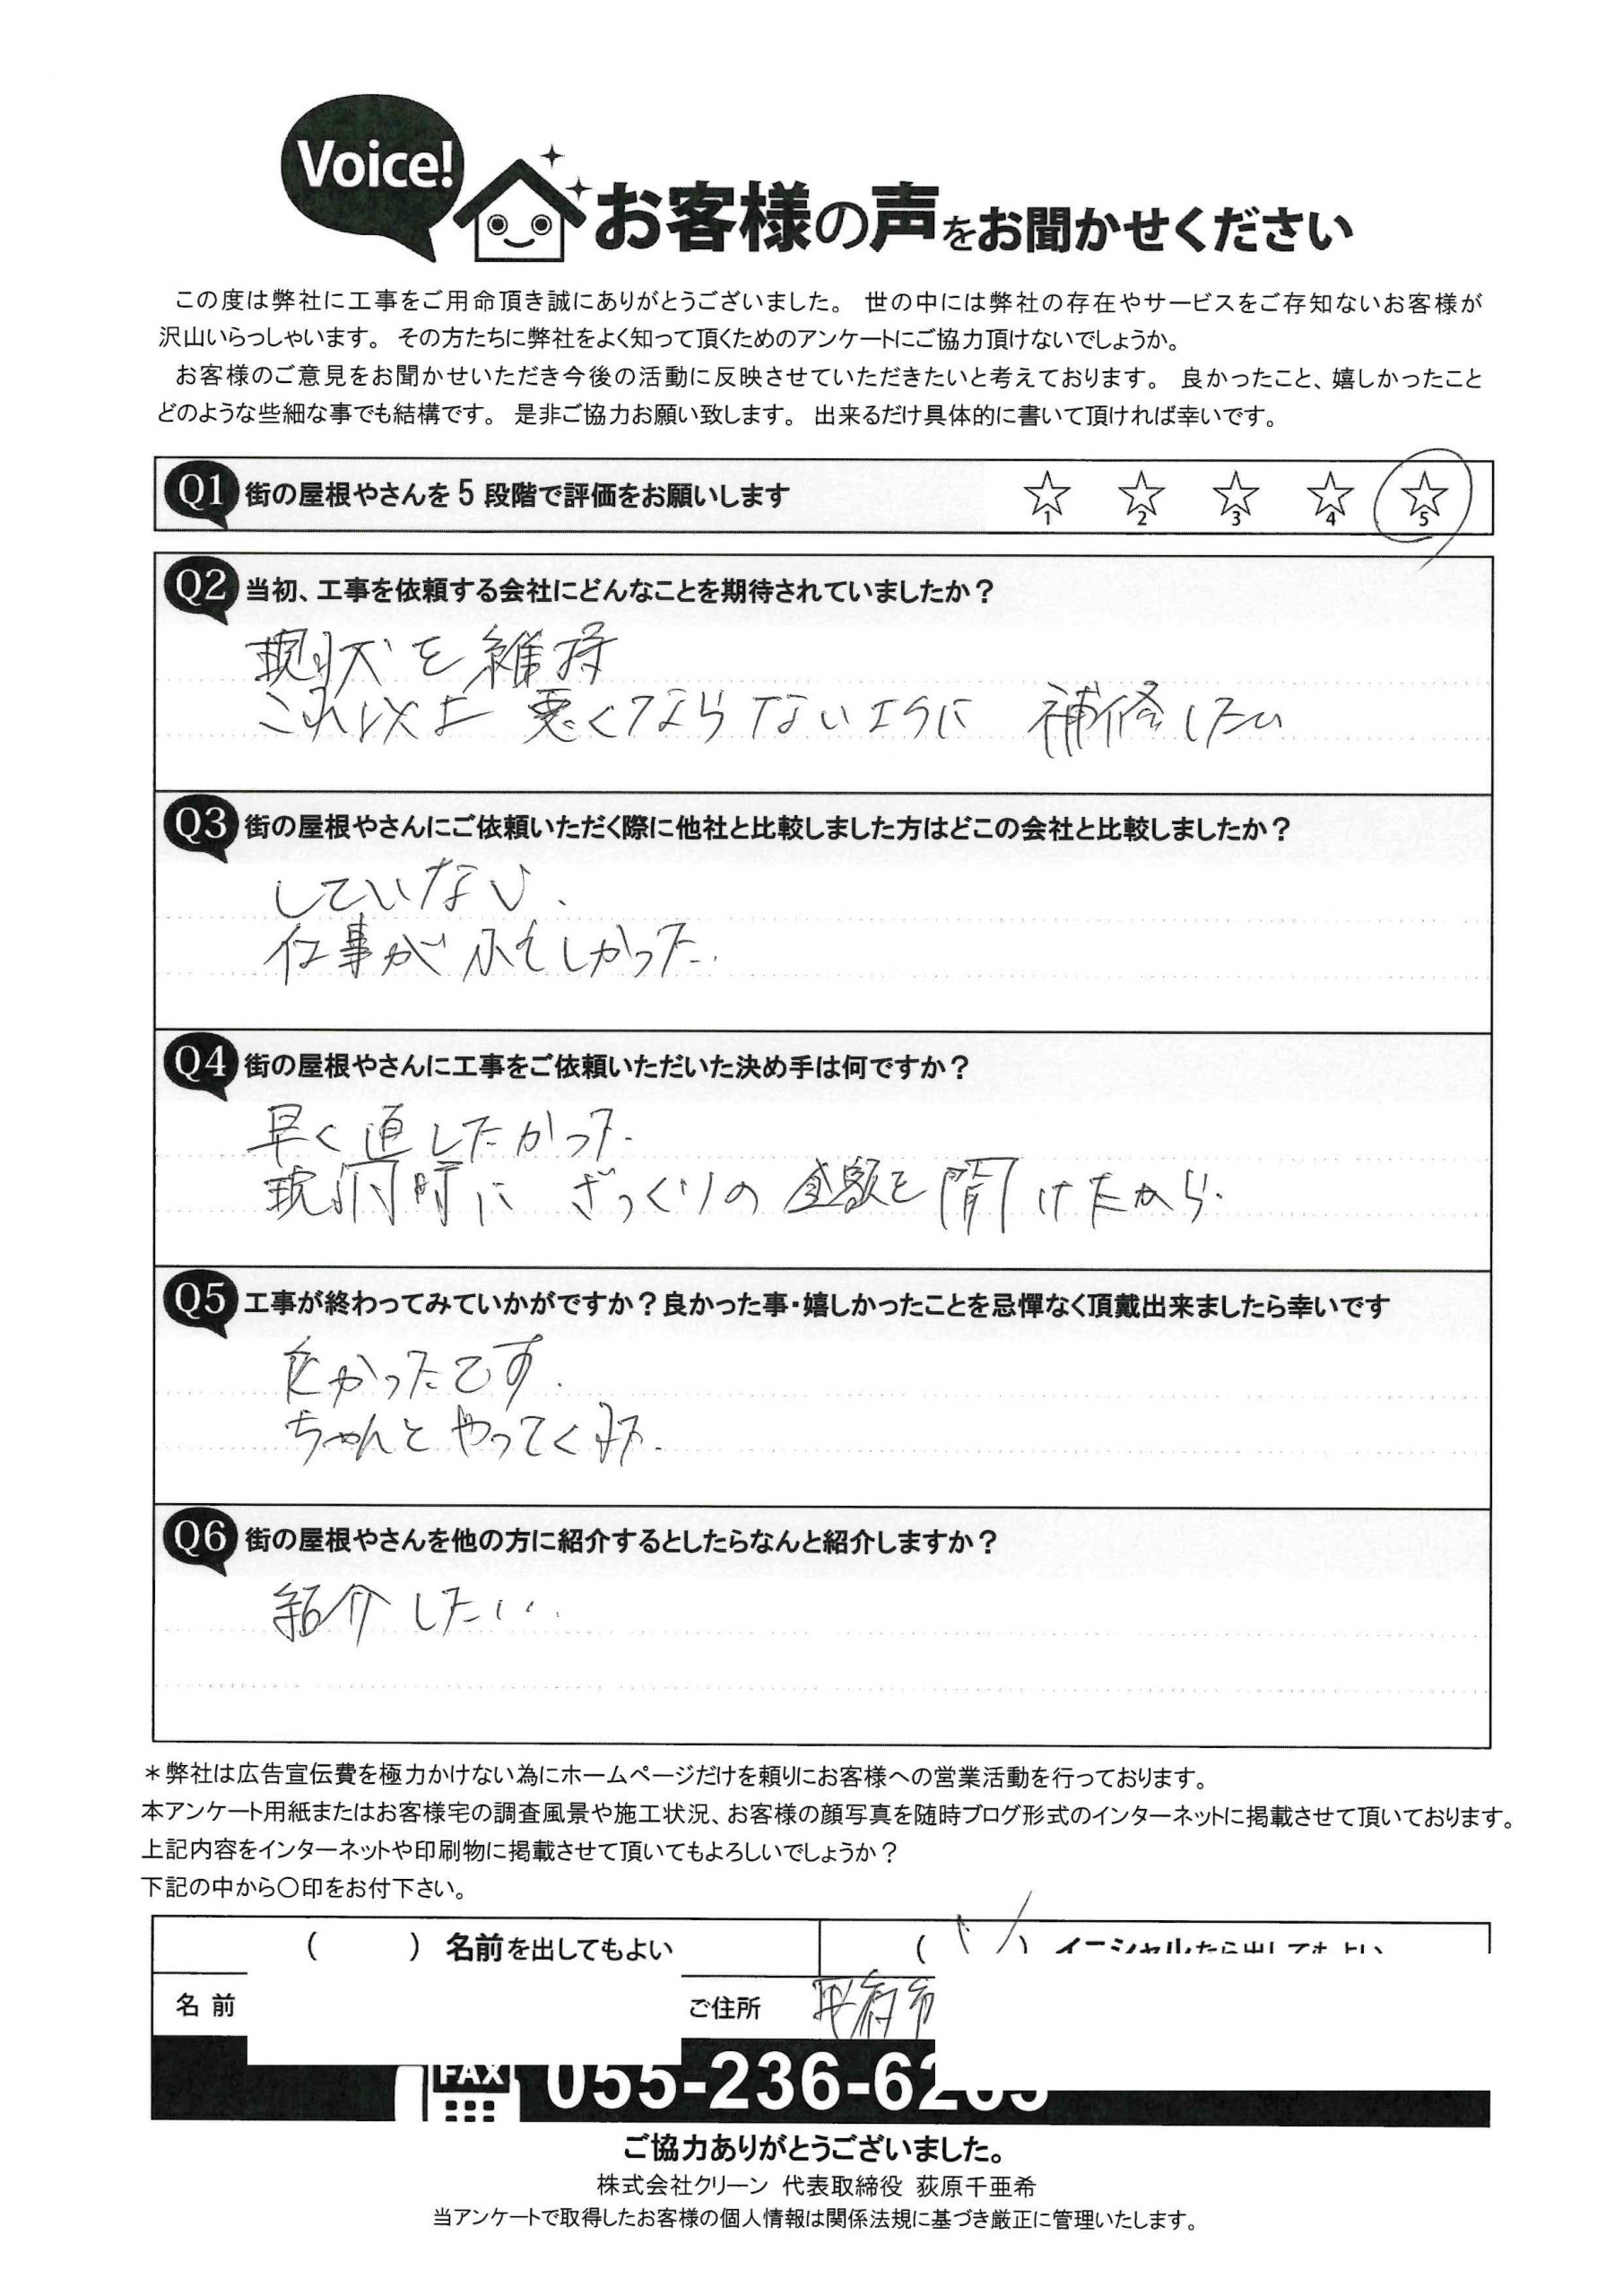 Voice!
お客様の声をお聞かせください
この度は弊社に工事をご用命頂き誠にありがとうございました。 世の中には弊社の存在やサービスをご存知ないお客様が
沢山いらっしゃいます。 その方たちに弊社をよく知って頂くためのアンケートにご協力頂けないでしょうか。
お客様のご意見をお聞かせいただき今後の活動に反映させていただきたいと考えております。 良かったこと、嬉しかったこと
どのような些細な事でも結構です。 是非ご協力お願い致します。 出来るだけ具体的に書いて頂ければ幸いです。
Q1 街の屋根やさんを5段階で評価をお願いします ☆1 ☆2 ☆3 ☆4 ☆5
Q2 当初、工事を依頼する会社にどんなことを期待されていましたか？
現状を維持
これ以上悪くならないように 補修したい
Q3 街の屋根やさんにご依頼いただく際に他社と比較しました方はどこの会社と比較しましたか？
していない、
仕事が
Q4 街の屋根やさんに工事をご依頼いただいた決め手は何ですか？
早く直したかった.
時に ざっくりの金額を聞けたから.
Q5 工事が終わってみていかがですか？良かった事・嬉しかったことを忌憚なく頂戴出来ましたら幸いです
良かったです.
ちゃんとやってくれた.
Q6 街の屋根やさんを他の方に紹介するとしたらなんと紹介しますか？
紹介したい.
＊弊社は広告宣伝費を極力かけない為にホームページだけを頼りにお客様への営業活動を行っております。
本アンケート用紙またはお客様宅の調査風景や施工状況、お客様の顔写真を随時ブログ形式のインターネットに掲載させて頂いております。
上記内容をインターネットや印刷物に掲載させて頂いてもよろしいでしょうか？
下記の中から〇印をお付下さい。
( ) 名前を出してもよい ( ) イニシャルなら出してもよい
名前 ご住所 甲府市
FAX 055-236-6
ご協力ありがとうございました。
株式会社クリーン 代表取締役 荻原千亜希
当アンケートで取得したお客様の個人情報は関係法規に基づき厳正に管理いたします。